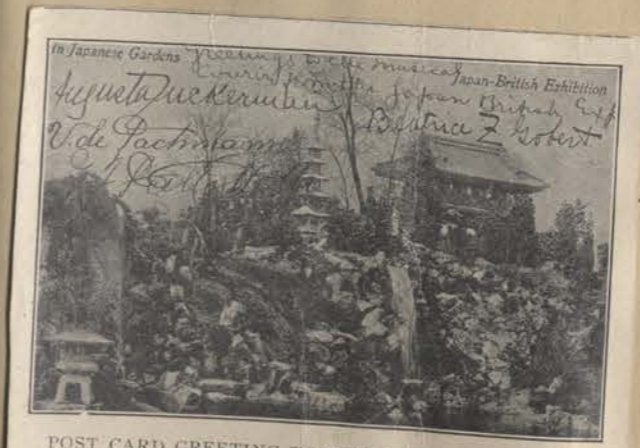 In Japanese Gardens
Japan-British Exhibition
Greetings to the Musical
Courier from the Japan British Exp
Augusta Zuckerman
Beatrice Z Gobert
V. de Pachmann
POST CARD GREETING